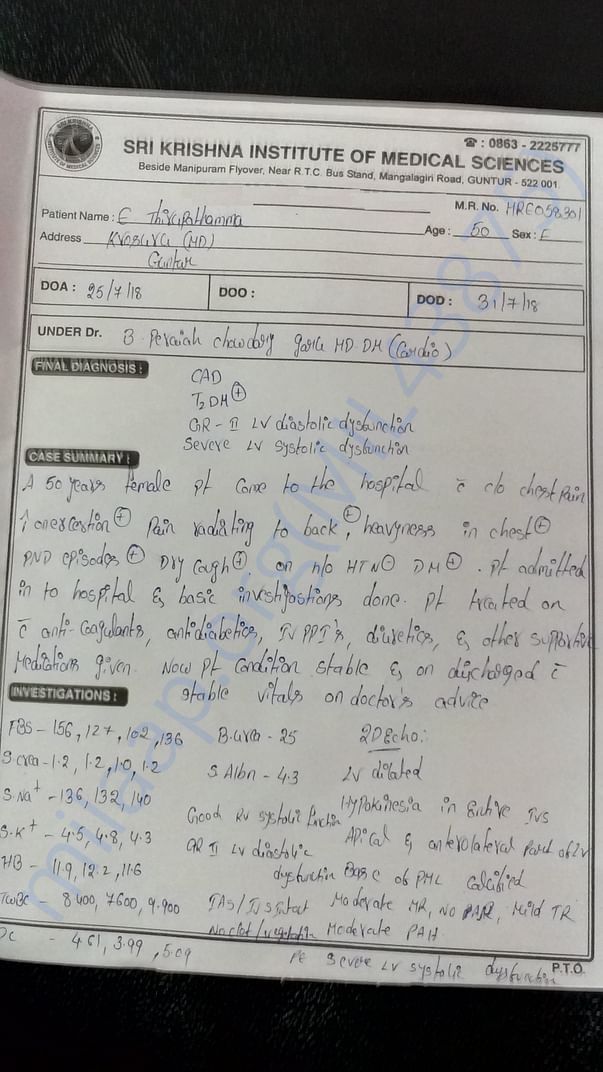 SRI KRISHNA INSTITUTE OF MEDICAL SCIENCES
☎ : 0863 - 2225777
SRI KRISHNA INSTITUTE OF MEDICAL SCIENCES
Beside Manipuram Flyover, Near R.T.C. Bus Stand, Mangalagiri Road, GUNTUR - 522 001.
M.R. No. HRE058301
Patient Name : E Thirupathamma
Age : 50 Sex : F
Address Krosuru (MD)
Guntur
DOA : 25/7/18 DOO : DOD : 31/7/18
UNDER Dr. B. Peraiah chowdary garu MD DM (Cardio)
FINAL DIAGNOSIS :
CAD
T2DM ⊕
GR - II LV diastolic dysfunction
Severe LV systolic dysfunction
CASE SUMMARY :
A 50 years female pt came to the hospital c̄ c/o chest pain
↑ on exertion ⊕ Pain radiating to back ⊕, heavyness in chest ⊕
PND episodes ⊕ Dry cough ⊕ on h/o HTN ⊖ DM ⊕ . pt admitted
in to hospital & basic investigations done. pt treated on
c̄ anti-coagulants, antidiabetics, IV PPI's, diuretics, & other supportive
Meditations given. Now pt condition stable & on discharged c̄
stable vitals on doctor's advice
INVESTIGATIONS :
FBS - 156, 127, 102, 136 B.urea - 25 2D Echo :
S.crea - 1.2, 1.2, 1.0, 1.2 S.Albn - 4.3 LV dilated
S.Na⁺ - 136, 132, 140 Hypokinesia in Entire IVS
S.K⁺ - 4.5, 4.8, 4.3 Good RV systolic function Apical & anterolateral part of LV
HB - 11.9, 12.2, 11.6 GR II LV diastolic dysfunction Base of PML calcified
TWBC - 8400, 7600, 9.900 IAS / IVS Intact Moderate MR, No AR, Mild TR
No clot / vegetation Moderate PAH
DC - 4.61, 3.99, 5.09 Severe LV systolic dysfunction
P.T.O.
milaap.org(MIL_43872)